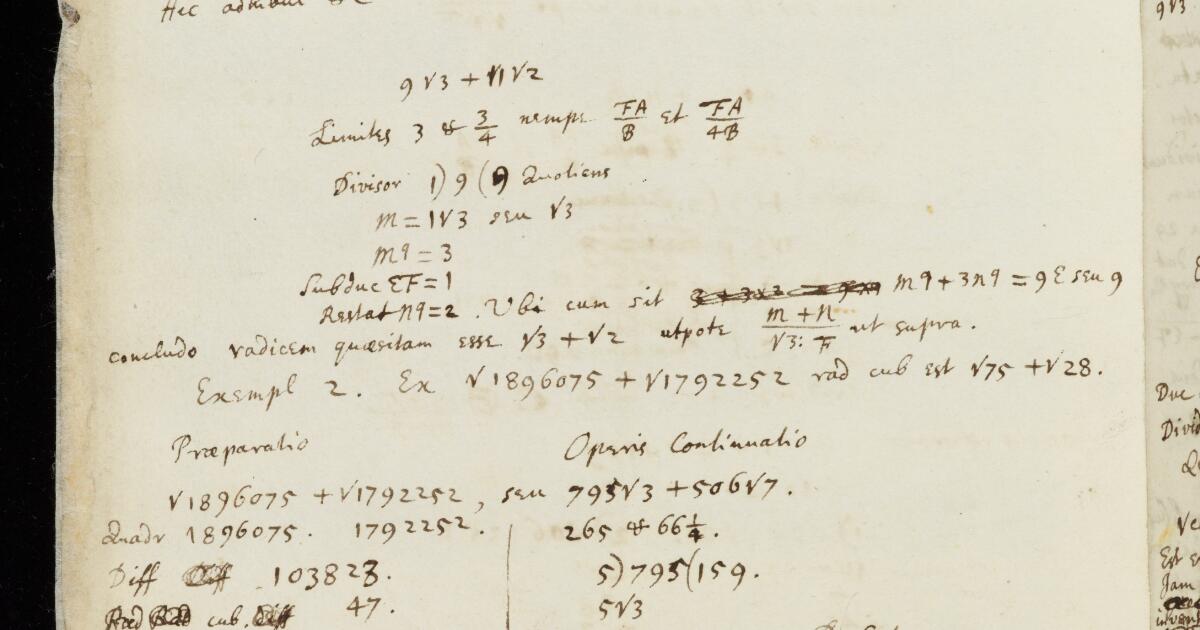 Hec
9√3 + 11√2
Limites 3 & 3/4 nempe FA/B et FA/4B
Divisor 1) 9 (9 Quotiens
m = 1√3 seu √3
mq = 3
Subduc EF = 1
Restat nq = 2. Ubi cum sit mq + 3nq = 9E seu 9
concludo radicem quæsitam esse √3 + √2 utpote m + n/√3: F ut supra.
Exempl 2. Ex √1896075 + √1792252 rad cub est √75 + √28.
Præparatio
√1896075 + √1792252, seu
Quadr 1896075. 1792252.
Diff 103823.
Rad cub. 47.
Operis Continuatio
795√3 + 506√7.
265 & 66 1/4.
5) 795 (159.
5√3
9√3
Duc
Divid
Est
Jam